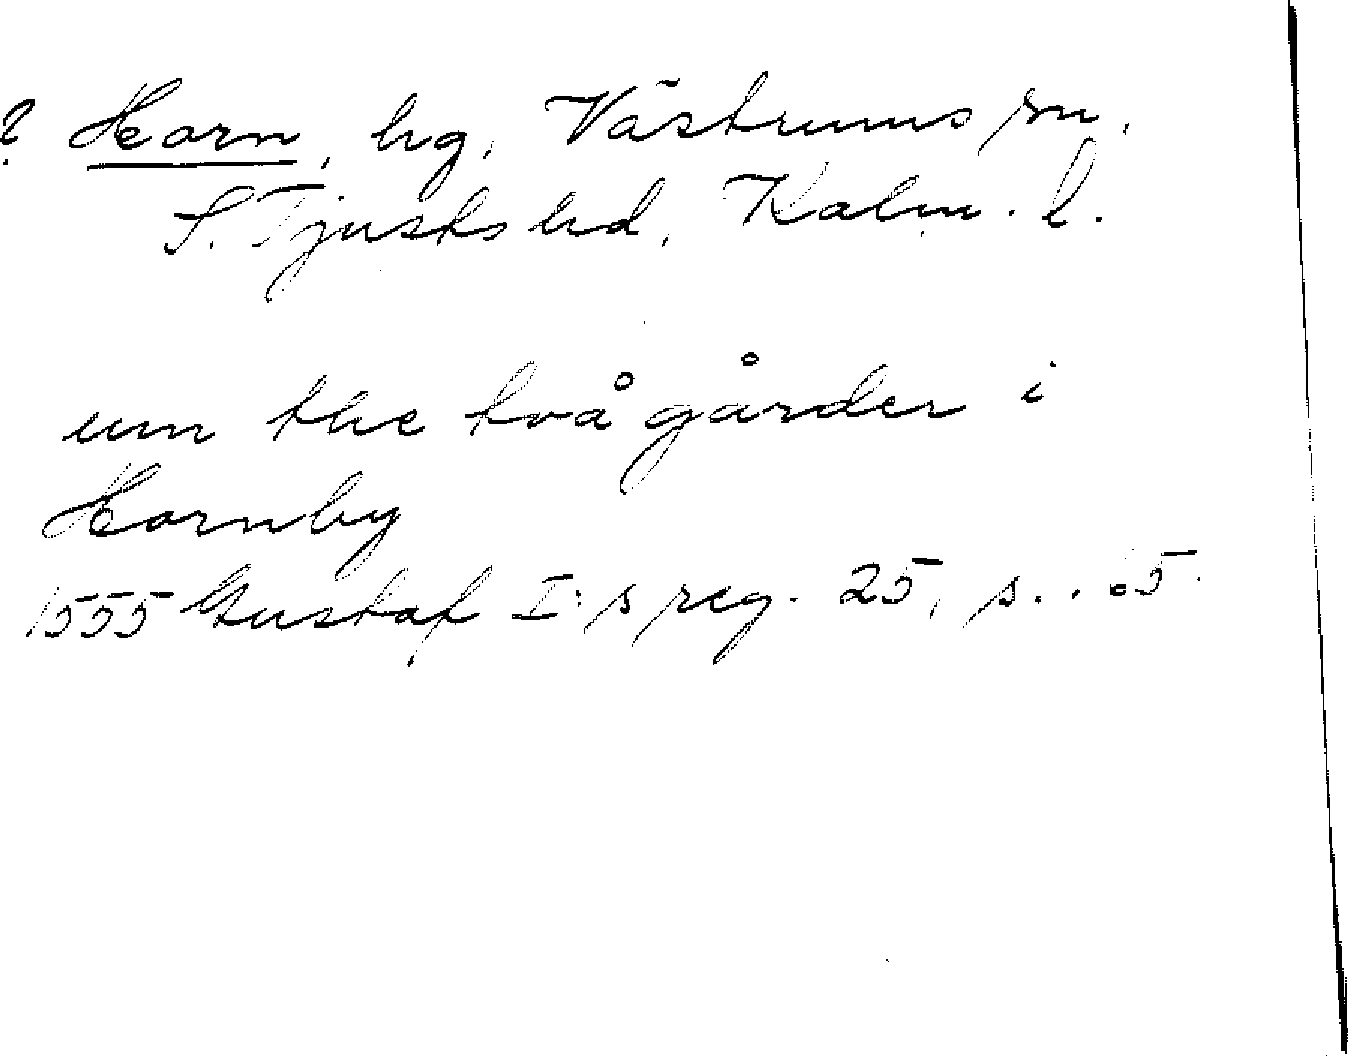 ? Horn, hg, Västrums sn,
S. Tjusts hd, Kalm. l.
um the två gårder i
Hornby
1555 Gustaf I:s reg. 25, s.